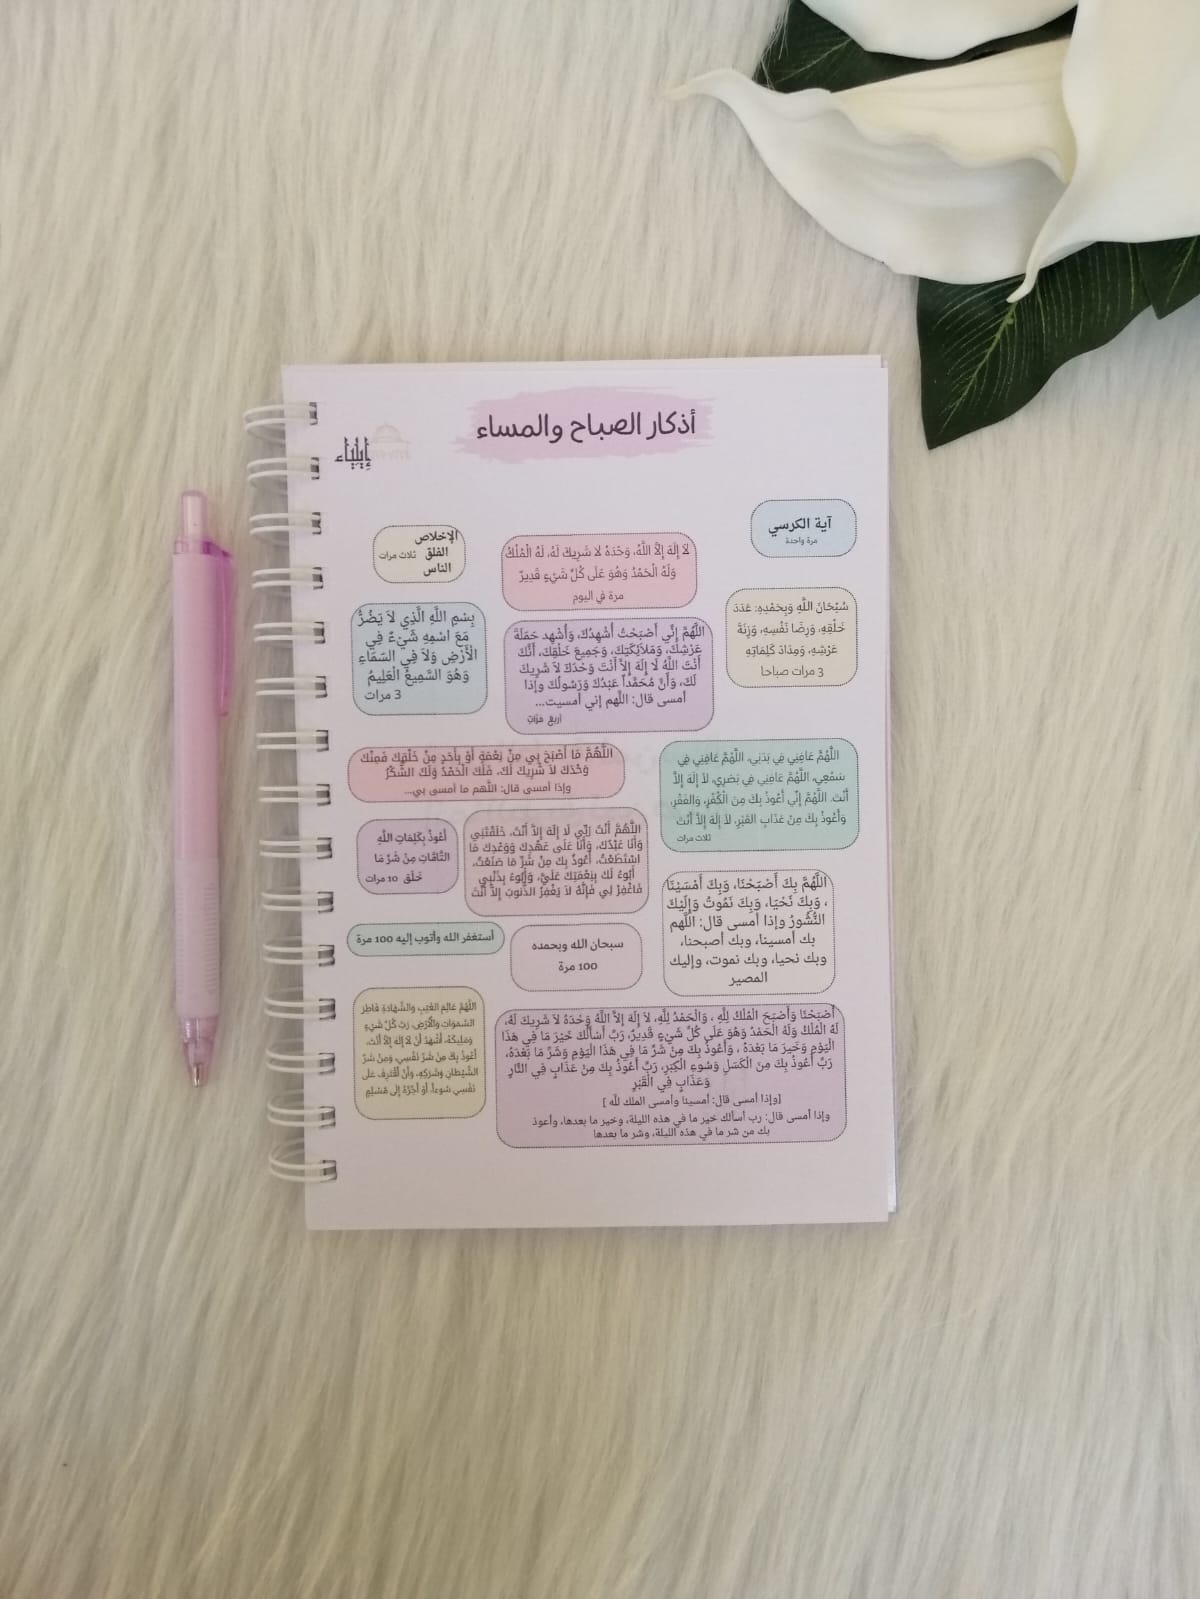 أذكار الصباح والمساء
إيلياء
آية الكرسي
مرة واحدة
لاَ إِلَهَ إِلاَّ اللَّهُ، وَحْدَهُ لاَ شَرِيكَ لَهُ، لَهُ الْمُلْكُ
وَلَهُ الْحَمْدُ وَهُوَ عَلَى كُلِّ شَيْءٍ قَدِيرٌ
مرة في اليوم
الإخلاص
الفلق ثلاث مرات
الناس
سُبْحَانَ اللَّهِ وَبِحَمْدِهِ: عَدَدَ
خَلْقِهِ، وَرِضَا نَفْسِهِ، وَزِنَةَ
عَرْشِهِ، وَمِدَادَ كَلِمَاتِهِ
3 مرات صباحا
اللَّهُمَّ إِنِّي أَصْبَحْتُ أُشْهِدُكَ، وَأُشْهِد حَمَلَةَ
عَرْشِكَ، وَمَلاَئِكَتِكَ، وَجَمِيعَ خَلْقِكَ، أَنَّكَ
أَنْتَ اللَّهُ لَا إِلَهَ إِلاَّ أَنْتَ وَحْدَكَ لاَ شَرِيكَ
لَكَ، وَأَنَّ مُحَمَّداً عَبْدُكَ وَرَسُولُكَ وإذا
أمسى قال: اللَّهم إني أمسيت...
أربعَ مَرَّاتٍ
بِسْمِ اللَّهِ الَّذِي لاَ يَضُرُّ
مَعَ اسْمِهِ شَيْءٌ فِي
الْأَرْضِ وَلاَ فِي السّمَاءِ
وَهُوَ السَّمِيعُ الْعَلِيمُ
3 مرات
اللَّهُمَّ عَافِنِي فِي بَدَنِي، اللَّهُمَّ عَافِنِي فِي
سَمْعِي، اللَّهُمَّ عَافِنِي فِي بَصَرِي، لاَ إِلَهَ إِلاَّ
أَنْتَ. اللَّهُمَّ إِنِّي أَعُوذُ بِكَ مِنَ الْكُفْرِ، وَالفَقْرِ،
وَأَعُوذُ بِكَ مِنْ عَذَابِ القَبْرِ، لاَ إِلَهَ إِلاَّ أَنْتَ
ثلاث مرات
اللَّهُمَّ مَا أَصْبَحَ بِي مِنْ نِعْمَةٍ أَوْ بِأَحَدٍ مِنْ خَلْقِكَ فَمِنْكَ
وَحْدَكَ لاَ شَرِيكَ لَكَ، فَلَكَ الْحَمْدُ وَلَكَ الشُّكْرُ
وإذا أمسى قال: اللَّهم ما أمسى بي...
اللَّهُمَّ أَنْتَ رَبِّي لَا إِلَهَ إِلاَّ أَنْتَ، خَلَقْتَنِي
وَأَنَا عَبْدُكَ، وَأَنَا عَلَى عَهْدِكَ وَوَعْدِكَ مَا
اسْتَطَعْتُ، أَعُوذُ بِكَ مِنْ شَرِّ مَا صَنَعْتُ،
أَبُوءُ لَكَ بِنِعْمَتِكَ عَلَيَّ، وَأَبُوءُ بِذَنْبِي
فَاغْفِرْ لِي فَإِنَّهُ لاَ يَغْفِرُ الذُّنوبَ إِلاَّ أَنْتَ
أَعُوذُ بِكَلِمَاتِ اللَّهِ
التَّامَّاتِ مِنْ شَرِّ مَا
خَلَقَ 10 مرات
اللَّهُمَّ بِكَ أَصْبَحْنَا، وَبِكَ أَمْسَيْنَا
، وَبِكَ نَحْيَا، وَبِكَ نَمُوتُ وَإِلَيْكَ
النُّشُورُ وإذا أمسى قال: اللَّهم
بك أمسينا، وبك أصبحنا،
وبك نحيا، وبك نموت، وإليك
المصير
سبحان الله وبحمده
100 مرة
أستغفر الله وأتوب إليه 100 مرة
أَصْبَحْنَا وَأَصْبَحَ الْمُلْكُ لِلَّهِ ، وَالْحَمْدُ لِلَّهِ، لاَ إِلَهَ إلاَّ اللَّهُ وَحْدَهُ لاَ شَرِيكَ لَهُ،
لَهُ الْمُلْكُ وَلَهُ الْحَمْدُ وَهُوَ عَلَى كُلِّ شَيْءٍ قَدِيرٌ، رَبِّ أَسْأَلُكَ خَيْرَ مَا فِي هَذَا
الْيَوْمِ وَخَيرَ مَا بَعْدَهُ ، وَأَعُوذُ بِكَ مِنْ شَرِّ مَا فِي هَذَا الْيَوْمِ وَشَرِّ مَا بَعْدَهُ،
رَبِّ أَعُوذُ بِكَ مِنَ الْكَسَلِ وَسُوءِ الْكِبَرِ، رَبِّ أَعُوذُ بِكَ مِنْ عَذَابٍ فِي النَّارِ
وَعَذَابٍ فِي الْقَبْرِ
[وإذا أمسى قال: أمسينا وأمسى الملك للَّه ]
وإذا أمسى قال: رب أسألك خير ما في هذه الليلة، وخير ما بعدها، وأعوذ
بك من شر ما في هذه الليلة، وشر ما بعدها
اللَّهُمَّ عَالِمَ الغَيْبِ وَالشَّهَادَةِ فَاطِرَ
السَّمَوَاتِ وَالْأَرْضِ، رَبَّ كُلِّ شَيْءٍ
وَمَلِيكَهُ، أَشْهَدُ أَنْ لاَ إِلَهَ إِلاَّ أَنْتَ،
أَعُوذُ بِكَ مِنْ شَرِّ نَفْسِي، وَمِنْ شَرِّ
الشَّيْطانِ وَشَرَكِهِ، وَأَنْ أَقْتَرِفَ عَلَى
نَفْسِي سُوءاً، أَوْ أَجُرَّهُ إِلَى مُسْلِمٍ